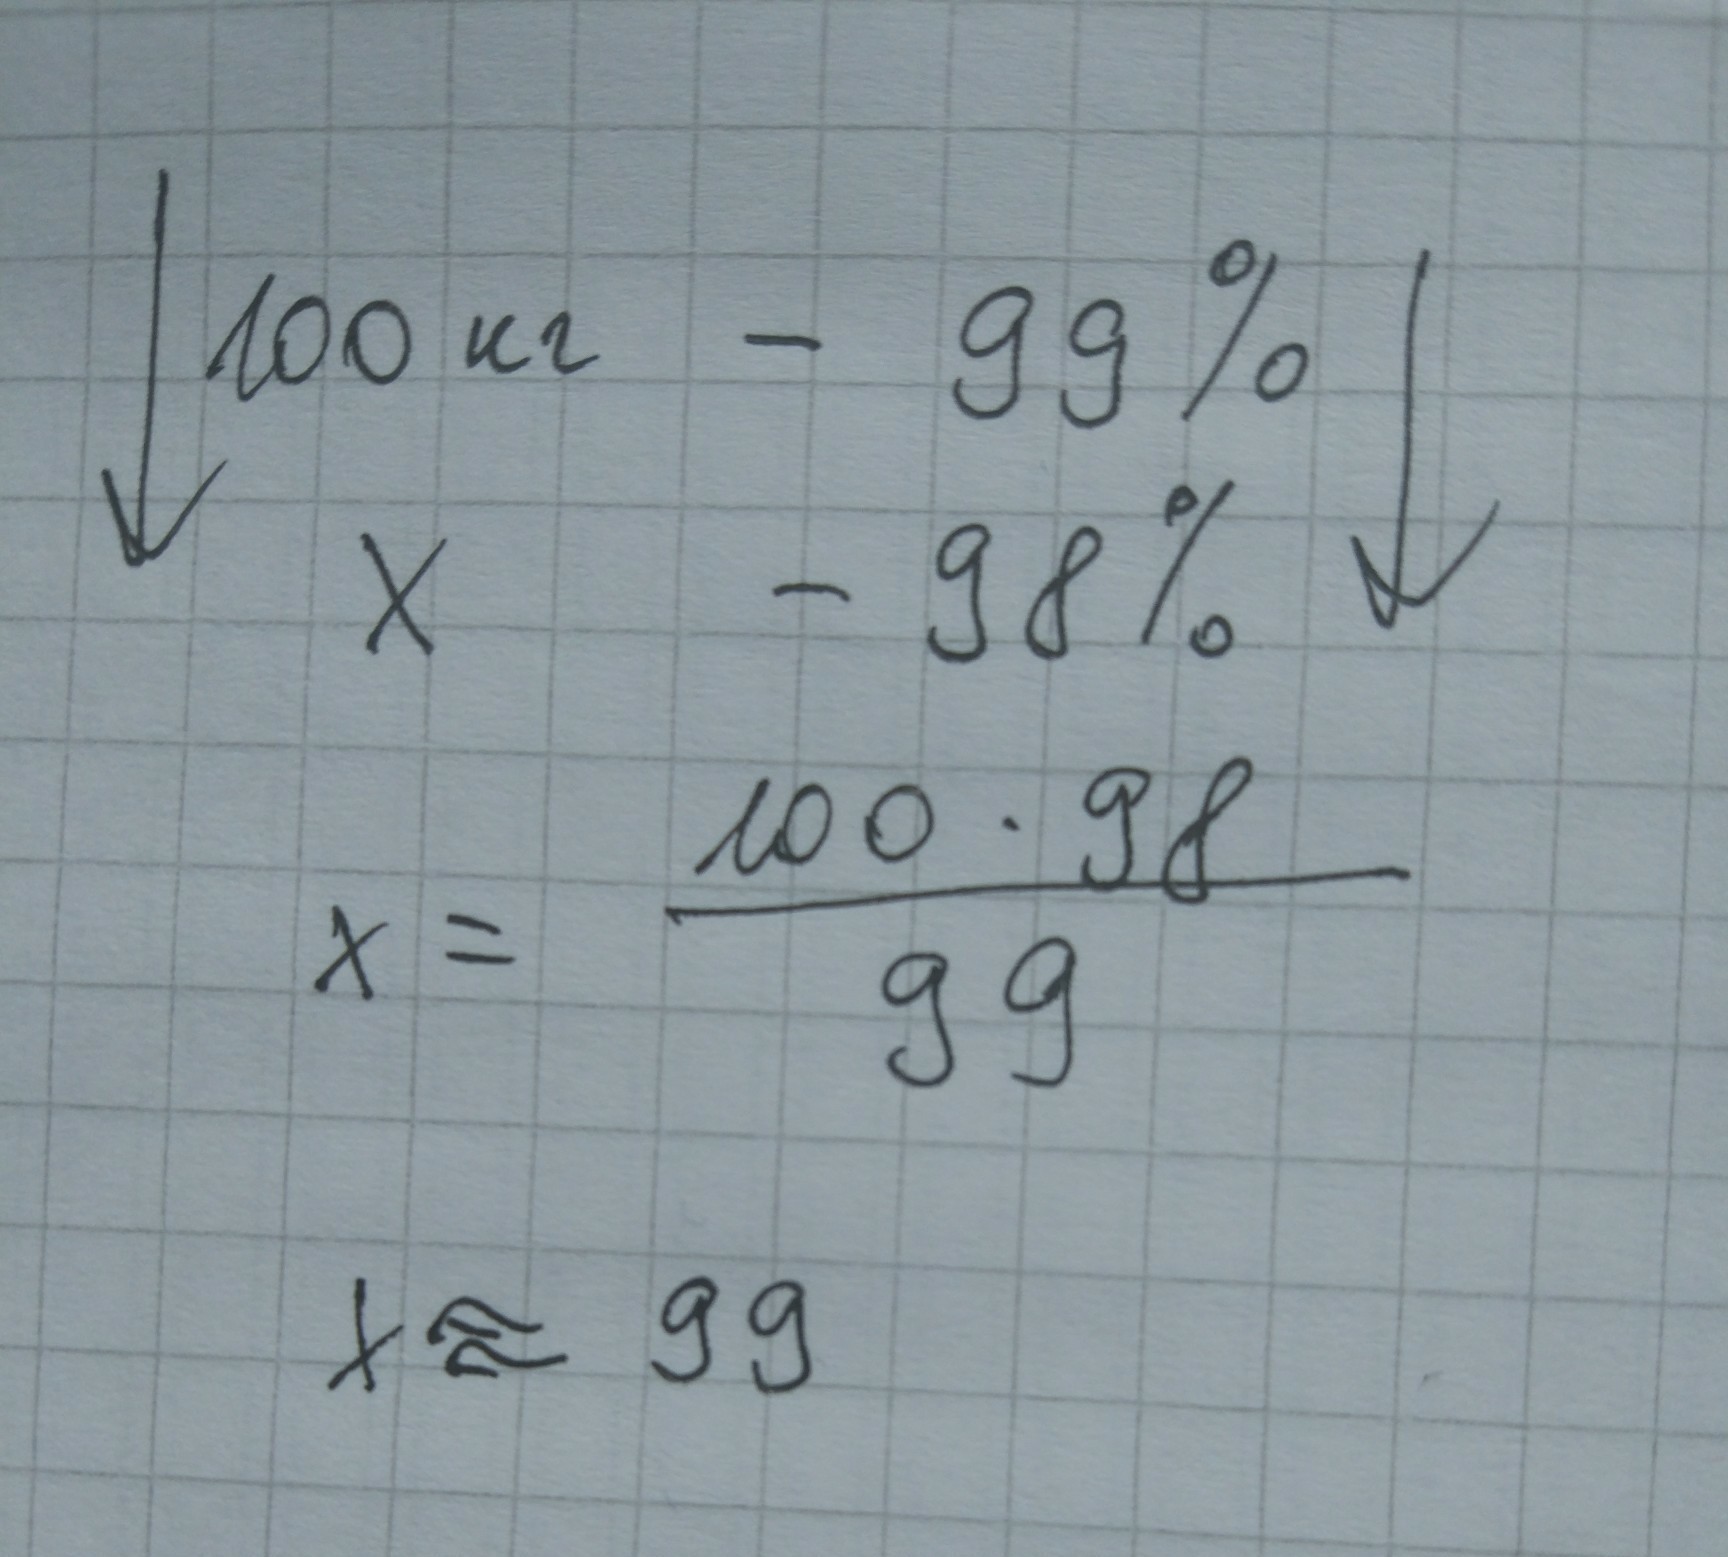 100 кг - 99%
x - 98%
x = 100 · 98 / 99
x ≈ 99